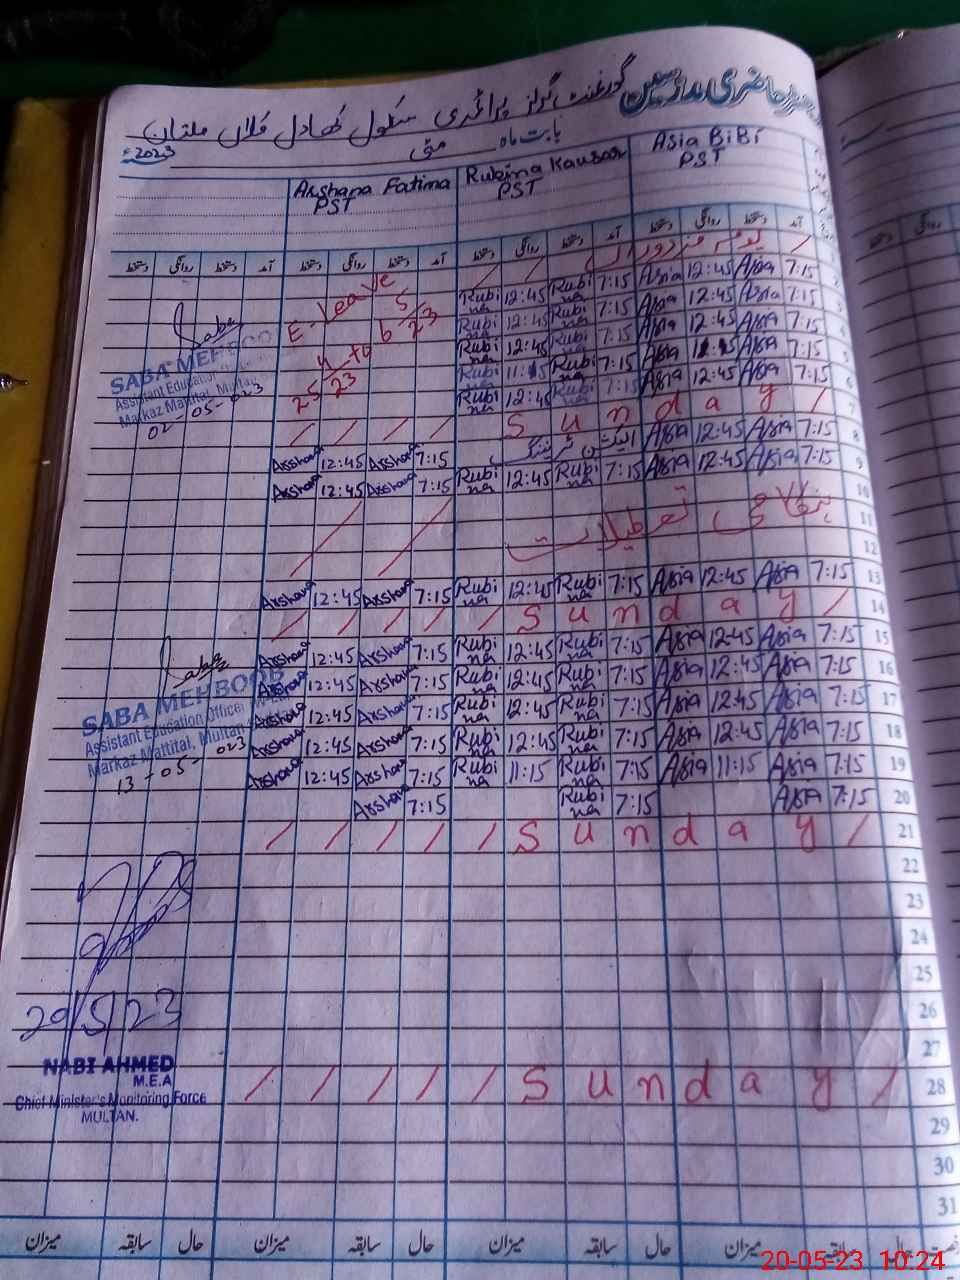 رجسٹر حاضری مدرسین
گورنمنٹ گرلز پرائمری سکول
ملتان
بابت ماہ مئی 2023ء
Arshana Fatima PST Rubina Kausar PST Asia BiBi PST
دستخط روانگی دستخط آمد دستخط روانگی دستخط آمد دستخط روانگی دستخط آمد دستخط روانگی دستخط آمد
یوم مزدوراں
E-Leave
25-4-23 to 6-5-23
Rubina 12:45 Rubina 7:15 Asia 12:45 Asia 7:15 2
Rubina 12:45 Rubina 7:15 Asia 12:45 Asia 7:15 3
Rubina 12:45 Rubina 7:15 Asia 12:45 Asia 7:15 4
Rubina Rubina 7:15 Asia Asia 7:15 5
Rubina 12:45 Rubina 7:15 Asia 12:45 Asia 7:15 6
/ / / / Sunday / 7
Arshana 12:45 Arshana 7:15 الیکشن ٹریننگ Asia 12:45 Asia 7:15 8
Arshana 12:45 Arshana 7:15 Rubina 12:45 Rubina 7:15 Asia 12:45 Asia 7:15 9
10
ہنگامی تعطیلات 11
12
Arshana 12:45 Arshana 7:15 Rubina 12:45 Rubina 7:15 Asia 12:45 Asia 7:15 13
/ / / / / Sunday / 14
Arshana 12:45 Arshana 7:15 Rubina 12:45 Rubina 7:15 Asia 12:45 Asia 7:15 15
Arshana 12:45 Arshana 7:15 Rubina 12:45 Rubina 7:15 Asia 12:45 Asia 7:15 16
Arshana 12:45 Arshana 7:15 Rubina 12:45 Rubina 7:15 Asia 12:45 Asia 7:15 17
Arshana 12:45 Arshana 7:15 Rubina 12:45 Rubina 7:15 Asia 12:45 Asia 7:15 18
Arshana 12:45 Arshana 7:15 Rubina 11:15 Rubina 7:15 Asia 11:15 Asia 7:15 19
Arshana 7:15 Rubina 7:15 Asia 7:15 20
/ / / / / Sunday / 21
22
23
24
25
26
27
/ / / / / Sunday / 28
29
30
31
میزان سابقہ حال میزان سابقہ حال میزان سابقہ حال میزان سابقہ حال
Saba
SABA MEHBOOB
Assistant Education
Markaz Mattital, Multan
02-05-023
Saba
SABA MEHBOOB
Assistant Education Officer
Markaz Mattital, Multan
13-05-023
20/5/23
NABI AHMED
M.E.A
Chief Minister's Monitoring Force
MULTAN.
20-05-23 10:24